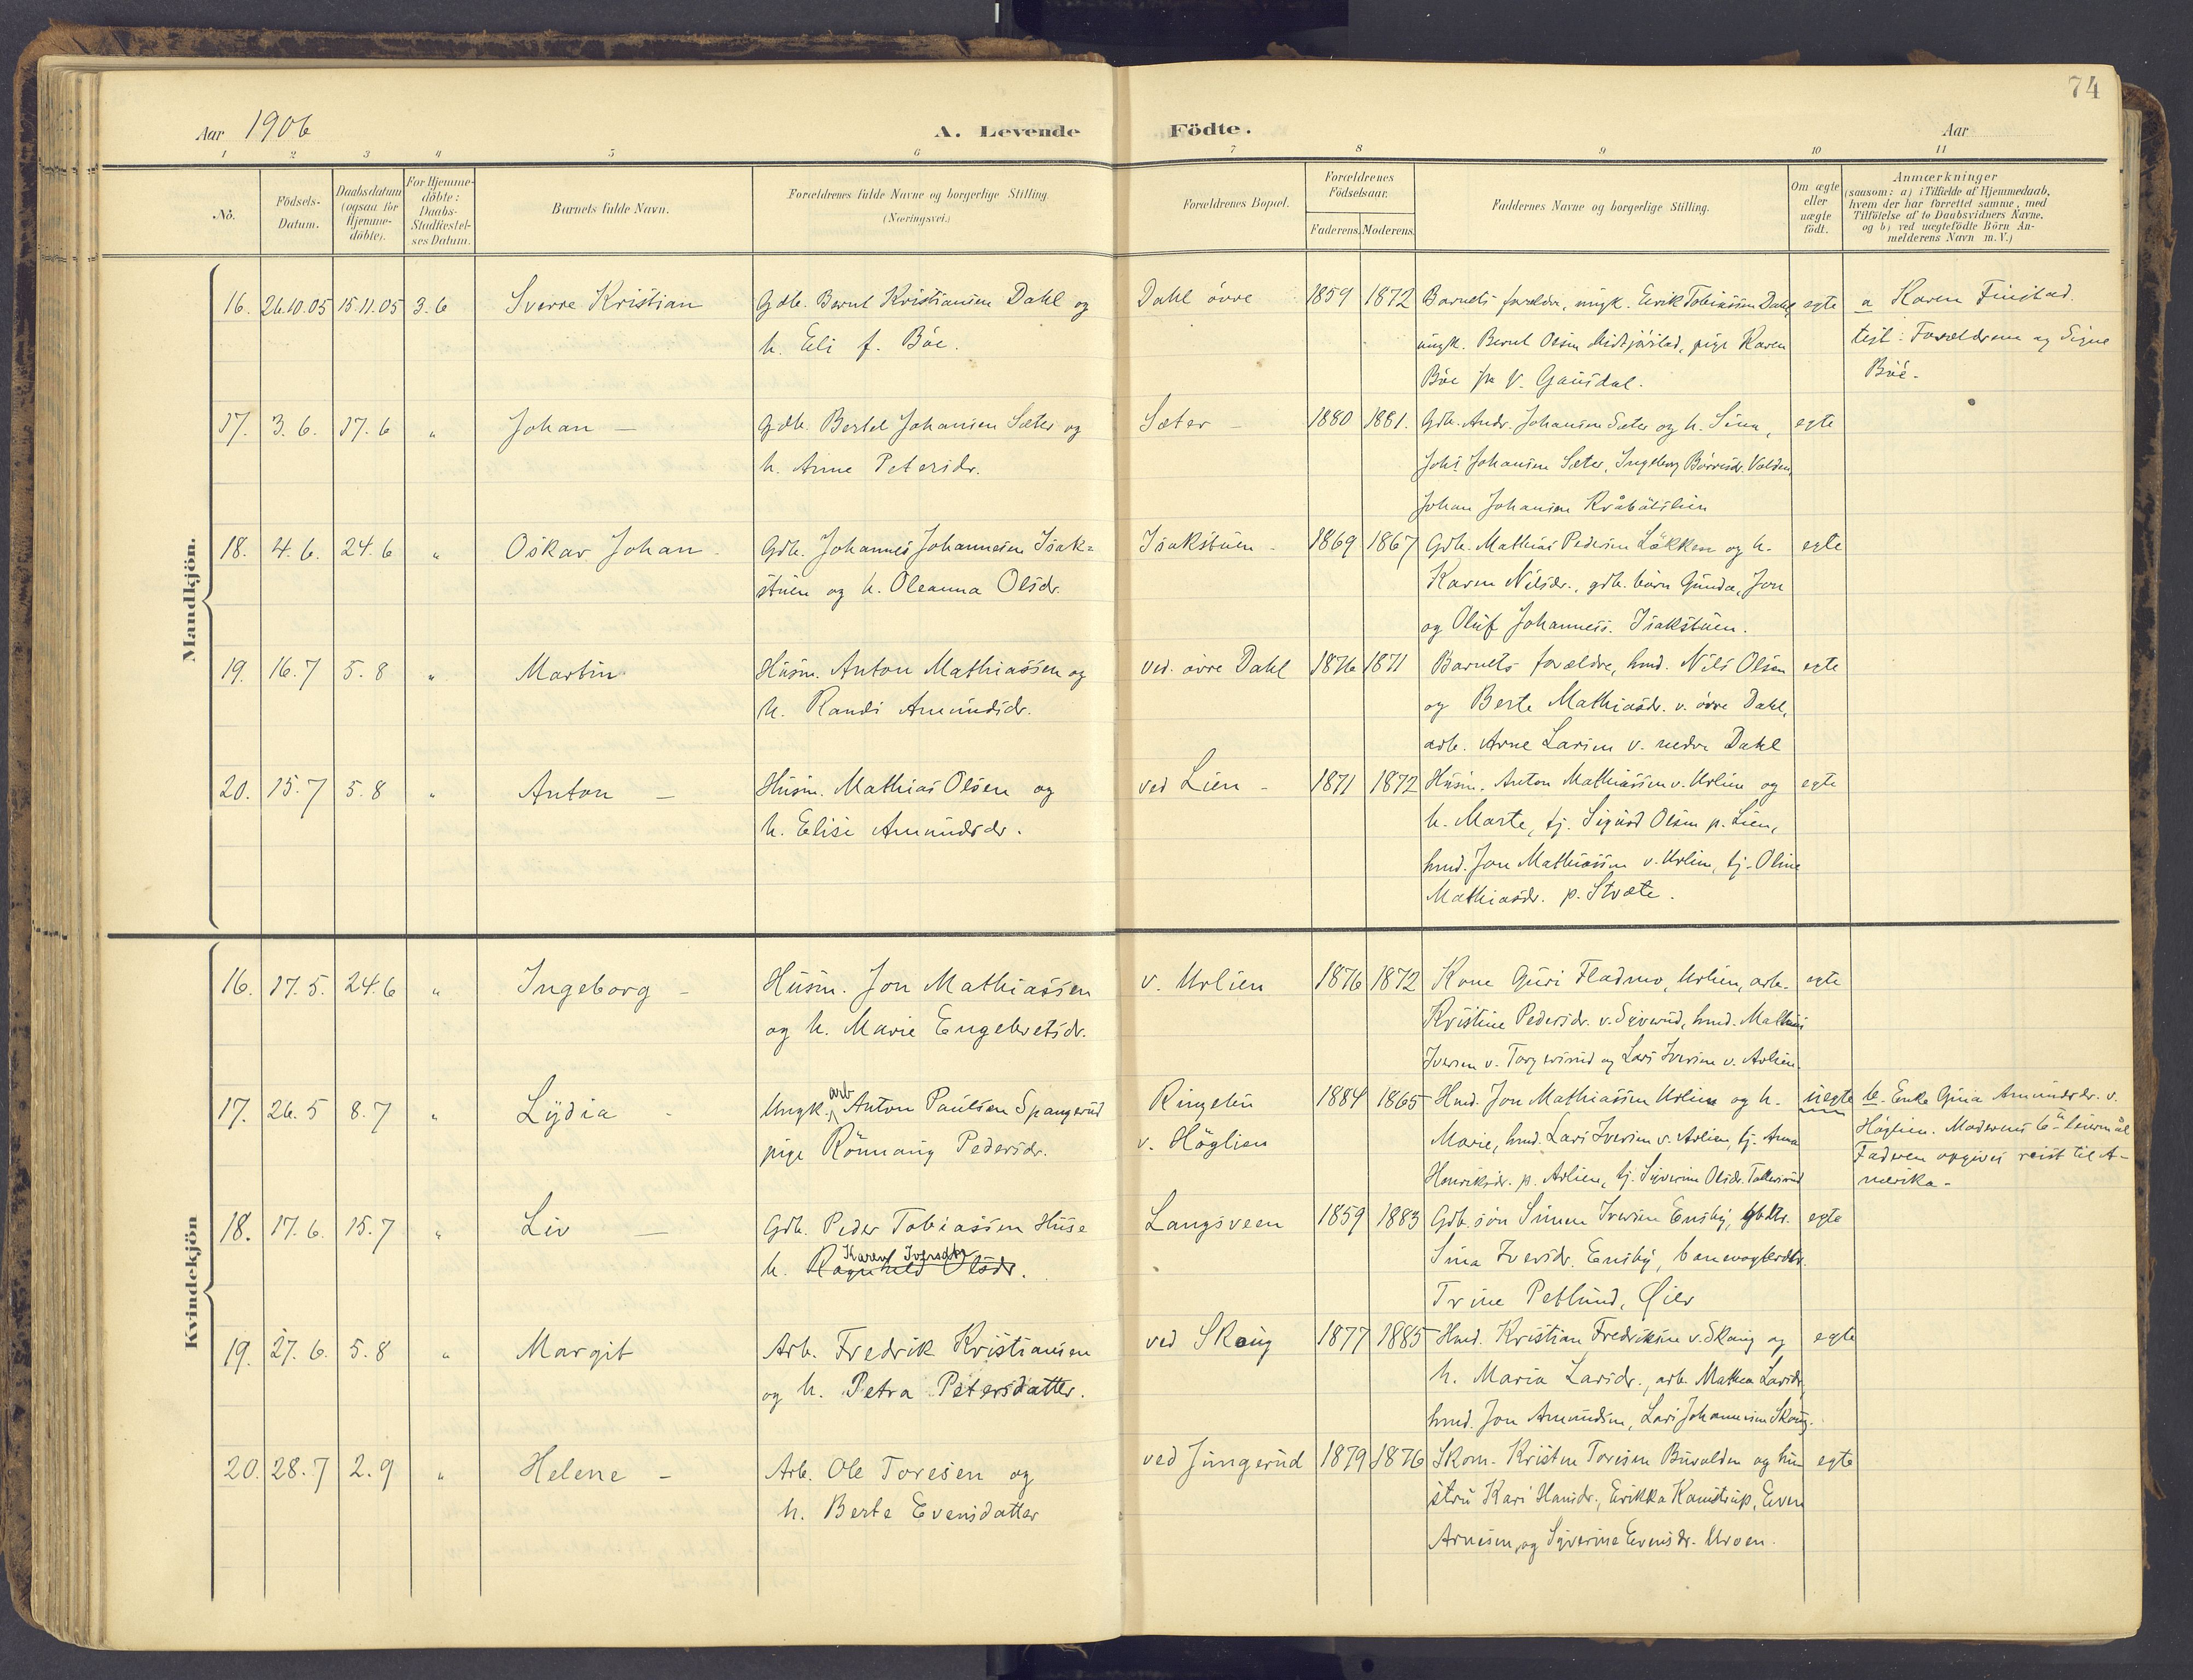 74
Aar 1906
A. Levende Födte.
Aar
1 2 3 4 5 6 7 8 9 10 11
Nô.
Födsels-
Datum.
Daabsdatum
(ogsaa för
Hjemme-
döbte).
For Hjemme-
döbte:
Daabs-
Stadfæstel-
ses Datum.
Barnets fulde Navn.
Forældrenes fulde Navne og borgerlige Stilling
(Næringsvei.)
Forældrenes Bopæl.
Forældrenes
Födselsaar.
Faderens. Moderens.
Faddernes Navne og borgerlige Stilling.
Om ægte
eller
uægte
födt.
Anmærkninger
(saasom: a) i Tilfælde af Hjemmedaab,
hvem der har forrettet samme, med
Tilföielse af to Daabsvidners Navne.
og b) ved uægtefödte Börn An-
melderens Navn m. V.)
Mandkjön.
16. 26.10.05 15.11.05 3.6 Sverre Kristian
Gdb. Bernt Kristiansen Dahl og
h. Eli f. Böe.
Dahl övre 1859 1872
Barnets forældre, ungk. Eirik Tobiassen Dahl,
ungk. Bernt Olsen, pige Karen
Böe fra V. Gausdal.
egte
a Karen Finstad.
test: Forældrene og Signe
Böe.
17. 3.6. 17.6 " Johan –
Gdb. Bertel Johansen Sæter og
h. Anne Petersdr.
Sæter – 1880 1881.
Gdb. Andr. Johansen Sæter og h. Sina,
Johs Johansen Sæter, Ingeborg Börresdr. Volden,
Johan Johansen
egte
18. 4.6. 24.6 " Oskar Johan –
Gdb. Johannes Johannesen Isak=
stuen og h. Oleanna Olsdr.
Isakstuen – 1869 1867
Gdb. Mathias Pedersen Lökken og h.
Karen Nilsdr., gdb. börn Gunda, Jon
og Oluf Johanness. Isakstuen.
egte
19. 16.7 5.8 " Martin
Husm. Anton Mathiassen og
h. Randi Amundsdr.
ved. övre Dahl 1876 1871
Barnets forældre, hmd. Nils Olsen
og Berte Mathiasdr. v. övre Dahl,
arb. Arne Larsen v. nedre Dahl
egte
20. 15.7 5.8 " Anton –
Husm. Mathias Olsen og
h. Elise Amundsdr.
ved Lien – 1871 1872
Husm. Anton Mathiassen v. Urlien og
h. Marte, tj. Sigurd Olsen p. Lien,
hmd. Jon Mathiassen v. Urlien, tj. Oline
Mathiasdr. p. Stræte.
egte
Kvindekjön
16. 17.5. 24.6 " Ingeborg –
Husm. Jon Mathiassen
og h. Marie Engebretsdr.
v. Urlien 1876 1872
Kone Guri Fladmo, Urlien, arb.
Kristine Pedersdr. v. Syverud, hmd. Mathias
Iversen v. Torgersrud og Lars Iversen v. Arlien.
egte
17. 26.5 8.7 " Lydia –
Ungk. arb Anton Paulsen Spangerud
pige Rönnaug Pedersdr.
Ringelien
v. Höglien
1884 1865
Hmd. Jon Mathiassen Urlien og h.
Marie, hmd. Lars Iversen v. Arlien, tj. Anna
Henriksdr. p. Arlien, tj. Syverine Olsdr. Tollersrud
uegte
b. Enke Guri Amundsdr. v.
Höglien. Moderens 6te leiermål
Faderen opgives reist til A-
merika –
18. 17.6. 15.7 " Liv –
Gdb. Peder Tobiassen Huse
Karen Iversdtr
h. Ragnhild Olsdr.
Langsveen 1859 1883
Gdb. sön Simen Iversen Ensby, gbdtr.
Sina Iversdr. Ensby, banevogterdtr.
Trine Petlund, Öier
egte
19. 27.6. 5.8 " Margit
Arb. Fredrik Kristiansen
og h. Petra Petersdatter.
ved Skaug 1877 1885
Hmd. Kristian Fredriksen v. Skaug og
h. Maria Larsdr., arb. Mathea Larsdr.,
hmd. Jon Amundsen, Lars Johannesen Skaug.
egte
20. 28.7 2.9 " Helene –
Arb. Ole Toresen og
h. Berte Evensdatter
ved Jungerud 1879 1876
Skom. Kristen Toresen Buvolden og hu-
stru Kari Hansdr., Erikka Kamstrup, Even
Arnesen og Syverine Evensdr. Uroen.
egte